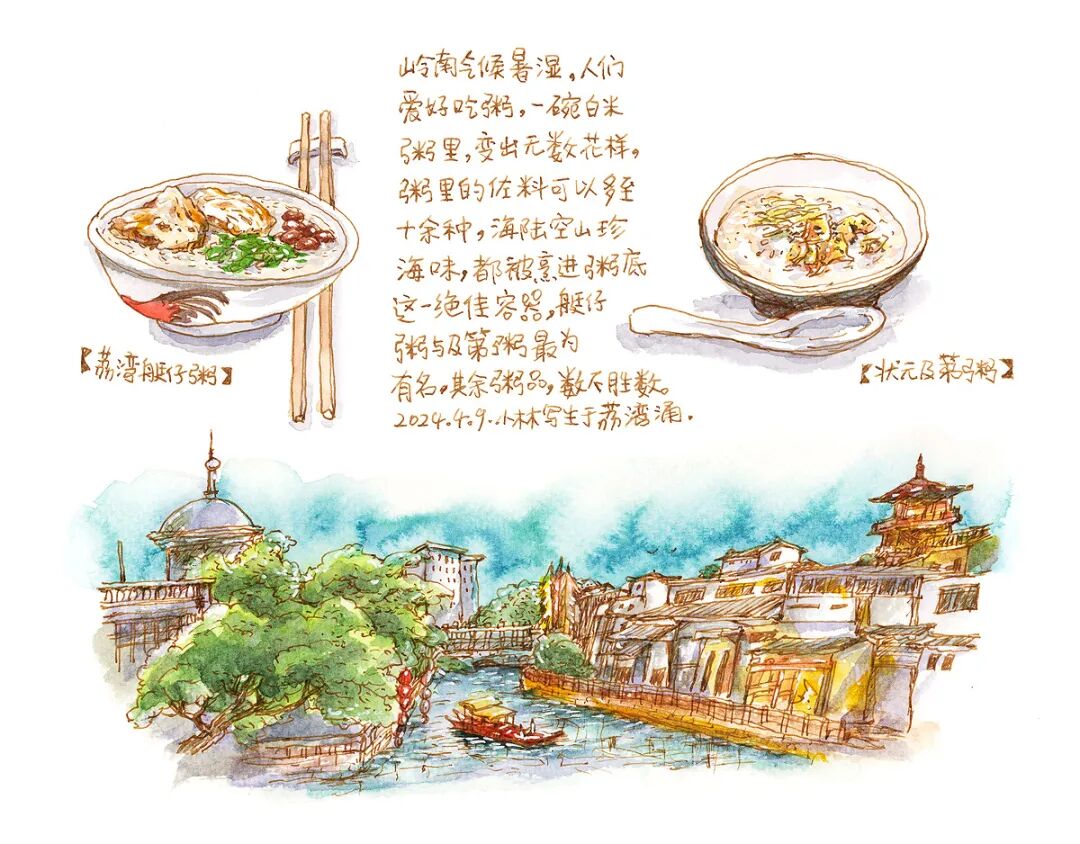 岭南气候暑湿，人们
爱好吃粥，一碗白米
粥里，变出无数花样，
粥里的佐料可以多至
十余种，海陆空山珍
海味，都被烹进粥底
这一绝佳容器，艇仔
粥与及第粥最为
有名，其余粥品，数不胜数。
2024.4.9.小林写生于荔湾涌.
【荔湾艇仔粥】
【状元及第粥】